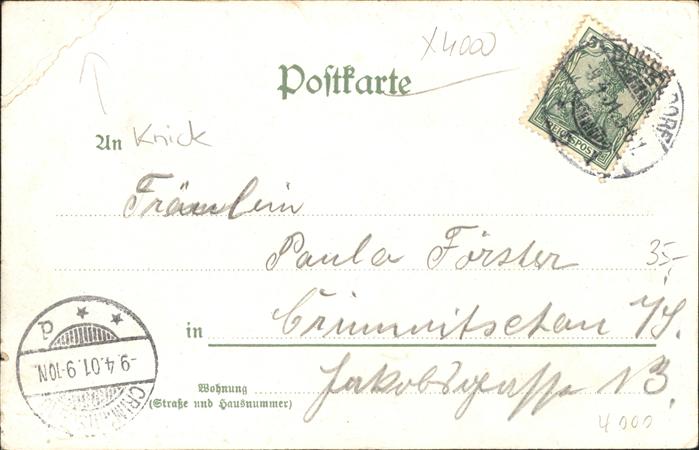 x4000
Postkarte
An Knick
Fräulein
Paula Förster
35,-
in Crimmitschau i/S.
Wohnung
(Straße und Hausnummer)
Jakobsgasse 13.
4000
REICHSPOST
-9.4.01.9-10N.